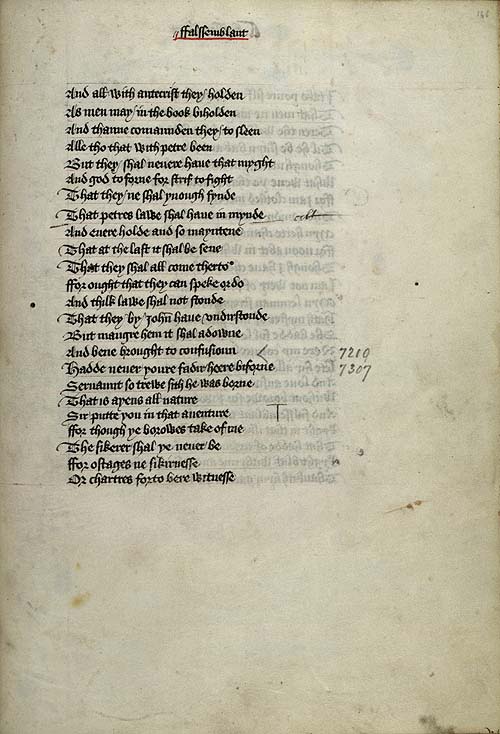 ffalssemblant
And all with antecrist they holden
As men may in the book biholden
And thanne comaunden they to sleen
Alle tho that with petre been
But they shal nevere have that myght
And god to forne for strif to fight
That they ne shal ynough fynde
That petres lawe shal have in mynde
And evere holde and so mayntene
That at the last it shal be sene
That they shal all come therto
ffor ought that they can speke or do
And thilk lawe shal not stonde
That they by John have undirstonde
But maugre hem it shal adowne
And bene brought to confusioun
7210
Hadde never youre fadir heere biforne
7307
Servaunt so trewe sith he was borne
That is ayens all nature
Sir putte you in that aventure
ffor though ye borowes take of me
The sikerer shal ye never be
ffor ostages ne sikirnesse
Or chartres forto bere witnesse